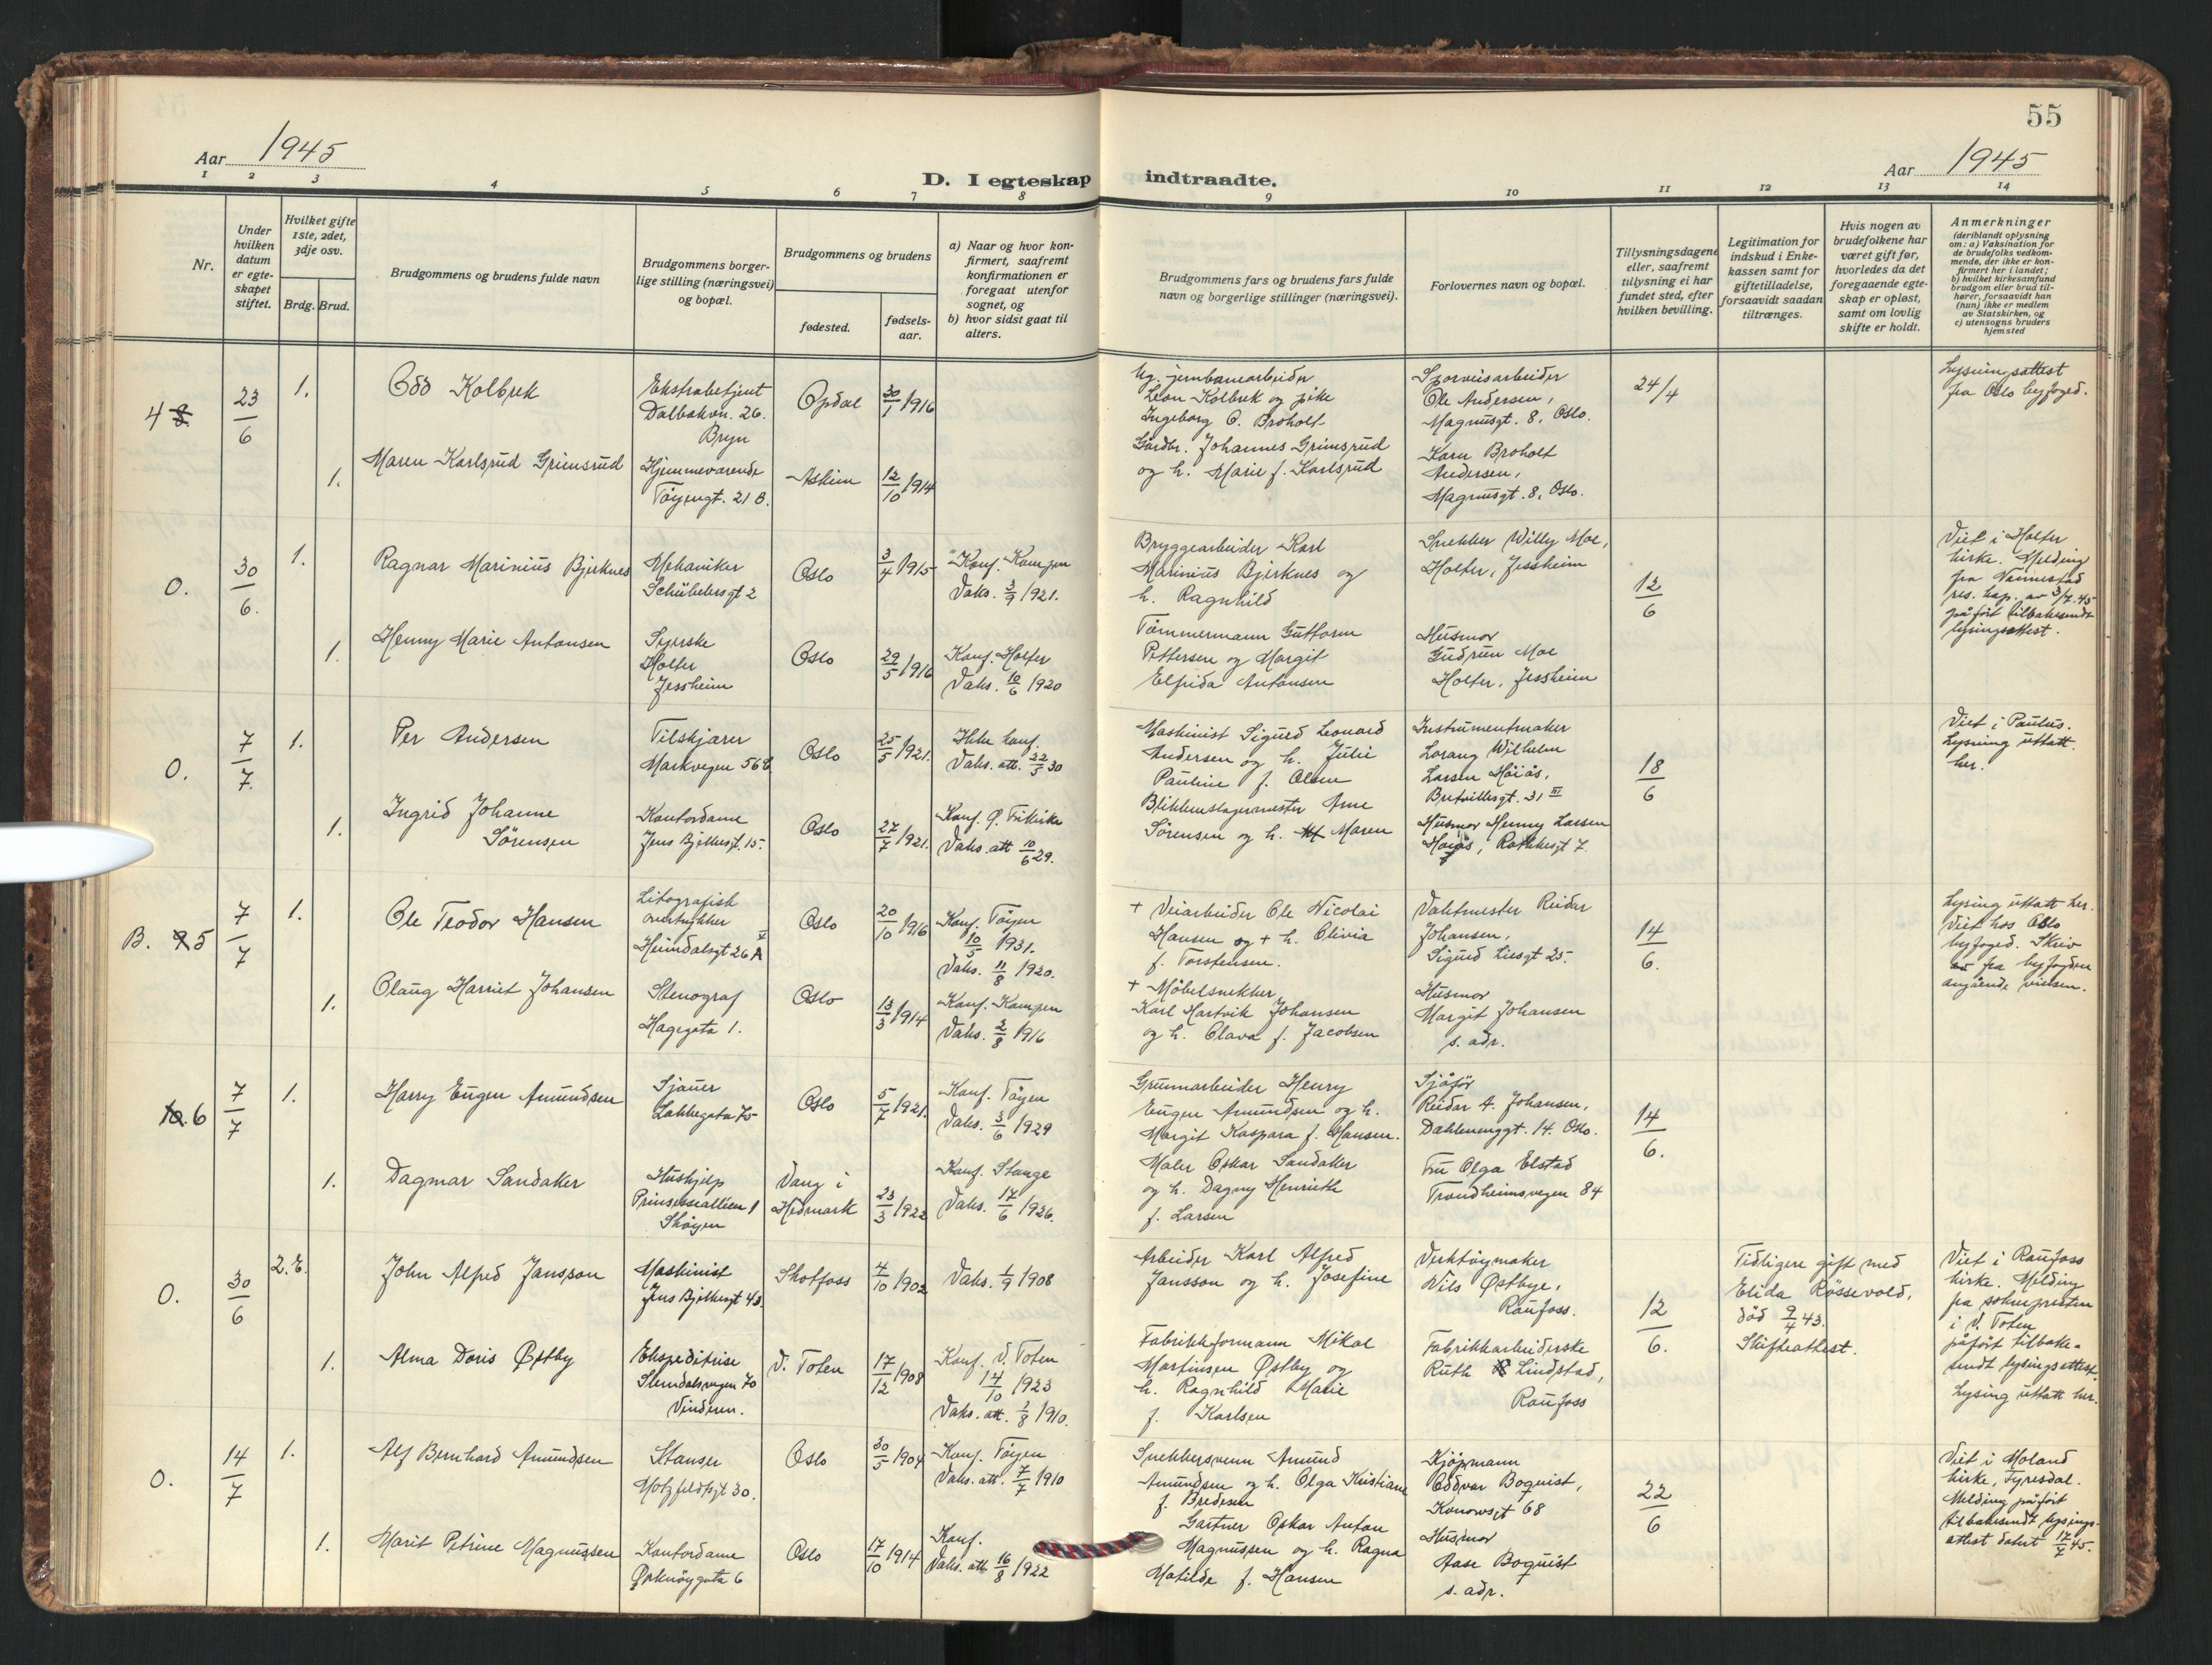 55
Aar 1945
Aar 1945
D. I egteskap indtraadte.
1 2 3 4 5 6 7 8 9 10 11 12 13 14
Nr.
Under hvilken datum er egteskapet stiftet.
Hvilket gifte 1ste, 2det, 3dje osv.
Brdg. Brud.
Brudgommens og brudens fulde navn
Brudgommens borgerlige stilling (næringsvei) og bopæl.
Brudgommens og brudens
fødested.
fødselsaar.
a) Naar og hvor konfirmert, saafremt konfirmationen er foregaat utenfor sognet, og
b) hvor sidst gaat til alters.
Brudgommens fars og brudens fars fulde navn og borgerlige stillinger (næringsvei).
Forlovernes navn og bopæl.
Tillysningsdagene eller, saafremt tillysning ei har fundet sted, efter hvilken bevilling.
Legitimation for indskud i Enkekassen samt for giftetilladelse, forsaavidt saadan tiltrænges.
Hvis nogen av brudefolkene har været gift før, hvorledes da det foregaaende egteskap er opløst, samt om lovlig skifte er holdt.
Anmerkninger
(deriblandt oplysning om: a) Vaksination for de brudefolks vedkommende, der ikke er konfirmert her i landet; b) hvilket kirkesamfund brudgom eller brud tilhører, forsaavidt han (hun) ikke er medlem av Statskirken, og c) utensogns bruders hjemsted
4 8
23/6
1.
Odd Kolbrek
Ekstrabetjent
Dalbakvn. 26.
Bryn
Opdal
30/1 1916
Ug. jernbanearbeider
Leon Kolbrek og pike
Ingeborg O. Broholt
Sporveisarbeider
Ole Andersen,
Magnusgt. 8, Oslo.
24/4
Lysningsattest
fra Oslo byfoged.
1.
Maren Karlsrud Grimsrud
Hjemmeværende
Tøyengt. 21 B.
Askim
12/10 1914
Gårdbr. Johannes Grimsrud
og h. Marie f. Karlsrud
Karn Broholt
Andersen,
Magnusgt. 8, Oslo.
O.
30/6.
1.
Ragnar Marinius Bjerknes
Mekaniker
Schübelersgt 2
Oslo
3/4 1915
Konf. Kampen
Vaks. 3/9 1921.
Bryggearbeider Karl
Marinius Bjerknes og
h. Ragnhild
Snekker Willy Moe,
Holter, Jessheim
12/6
Viet i Holter
kirke. Melding
fra Nannestad
res. kap. av 3/7.45
påført tilbakesendt
lysingsattest.
1.
Henny Marie Antonsen
Syerske
Holter
Jessheim
Oslo
29/5 1916
Konf. Holter
Vaks. 10/6 1920
Tømmermann Guttorm
Pettersen og Margit
Elfrida Antonsen
Husmor
Gudrun Moe
Holter, Jessheim
O.
7/7.
1.
Per Andersen
Tilskjærer
Markvegen 56
Oslo
25/5 1921.
Ikke konf.
Vaks. att. 22/5 30
Maskinist Sigurd Leonard
Andersen og h. Julie
Pauline f. Olsen
Instrumentmaker
Lorang Wilhelm
Larsen Höiås,
Bretvillesgt. 31 III
18/6
Viet i Paulus.
Lysning uttatt
her.
1.
Ingrid Johanne
Sørensen
Kontordame
Jens Bjelkesgt. 15.
Oslo
27/7 1921.
Konf. Ø. Frikirke
Vaks. att 10/6 29.
Blikkenslagermester Arne
Sørensen og h. Maren
Husmor Henny Larsen
Høiås, Rathkesgt 7.
B. 9 5
7/7
1.
Ole Teodor Hansen
Litografisk
overtrykker
Heimdalsgt 26 A V
Oslo
20/10 1916
Konf. Tøyen
10/5 1931.
Vaks. 11/8 1920.
+ Veiarbeider Ole Nicolai
Hansen og + h. Olivia
f. Torstensen.
Vaktmester Reidar
Johansen,
Sigurd Liesgt 25.
14/6.
Lysing uttatt her.
Viet hos Oslo
byfoged. Skriv
fra byfogden
angående vielsen.
1.
Olaug Harriet Johansen
Stenograf
Hagegata 1.
Oslo
13/3 1914
Konf. Kampen
Vaks. 2/8 1916
+ Møbelsnekker
Karl Hartvik Johansen
og h. Olava f. Jacobsen
Husmor
Margit Johansen
s. adr.
10. 6
7/7
1.
Harry Eugen Amundsen
Sjauer
Lakkegata 75
Oslo
5/7 1921.
Konf. Tøyen
Vaks. 3/6 1929
Grunnarbeider Henry
Eugen Amundsen og h.
Margit Kaspara f. Hansen.
Sjåfør
Reidar A. Johansen,
Dahlenenggt. 14. Oslo.
14/6.
1.
Dagmar Sandaker
Hushjelp
Prinsessealleen 1
Skøyen
Vang i
Hedmark
23/3 1922
Konf. Stange
Vaks. 17/6 1926.
Maler Oskar Sandaker
og h. Dagny Henriette
f. Larsen
Fru Olga Elstad
Trondheimsvegen 84
O.
30/6
2. E.
John Alfred Jansson
Maskinist
Jens Bjelkesgt 43.
Skotfoss
4/10 1902
Vaks. 1/9 1908
Arbeider Karl Alfred
Jansson og h. Josefine
Verktøymaker
Nils Østbye,
Raufoss.
12/6.
Tidligere gift med
Elida Røssevold,
død 9/4 43.
Skifteattest.
Viet i Raufoss
kirke. Melding
fra sokneprestn
i V. Toten
påført tilbake-
sendt lysingsattest.
Lysing uttatt her.
1.
Alma Doris Østby
Ekspeditrise
Slemdalsvegen 70
Vinderen.
V. Toten
17/12 1908
Konf. V. Toten
14/10 1923
Vaks. att. 2/8 1910.
Fabrikkformann Mikal
Martinsen Østby og
h. Ragnhild Marie
f. Karlsen
Fabrikkarbeiderske
Ruth Lindstad,
Raufoss
O.
14/7
1.
Alf Bernhard Amundsen
Stanser
Motzfeldtsgt 30.
Oslo
30/5 1904
Konf. Tøyen
Vaks. att. 7/7 1910
Snekkersvenn Amund
Amundsen og h. Olga Kristiane
f. Bredesen
Kjøpmann
Oddvar Boquist,
Konowsgt 68
22/6
Viet i Moland
kirke, Fyresdal.
Melding påført
tilbakesendt lysings-
attest datert 17/7 45.
1.
Marit Petrine Magnussen
Kontordame
Orknøygata 6
Oslo
17/10 1914
Konf.
Vaks. att. 16/8 1922
Gartner Oskar Anton
Magnussen og h. Ragna
Matilde f. Hansen
Husmor
Aase Boquist
s. adr.